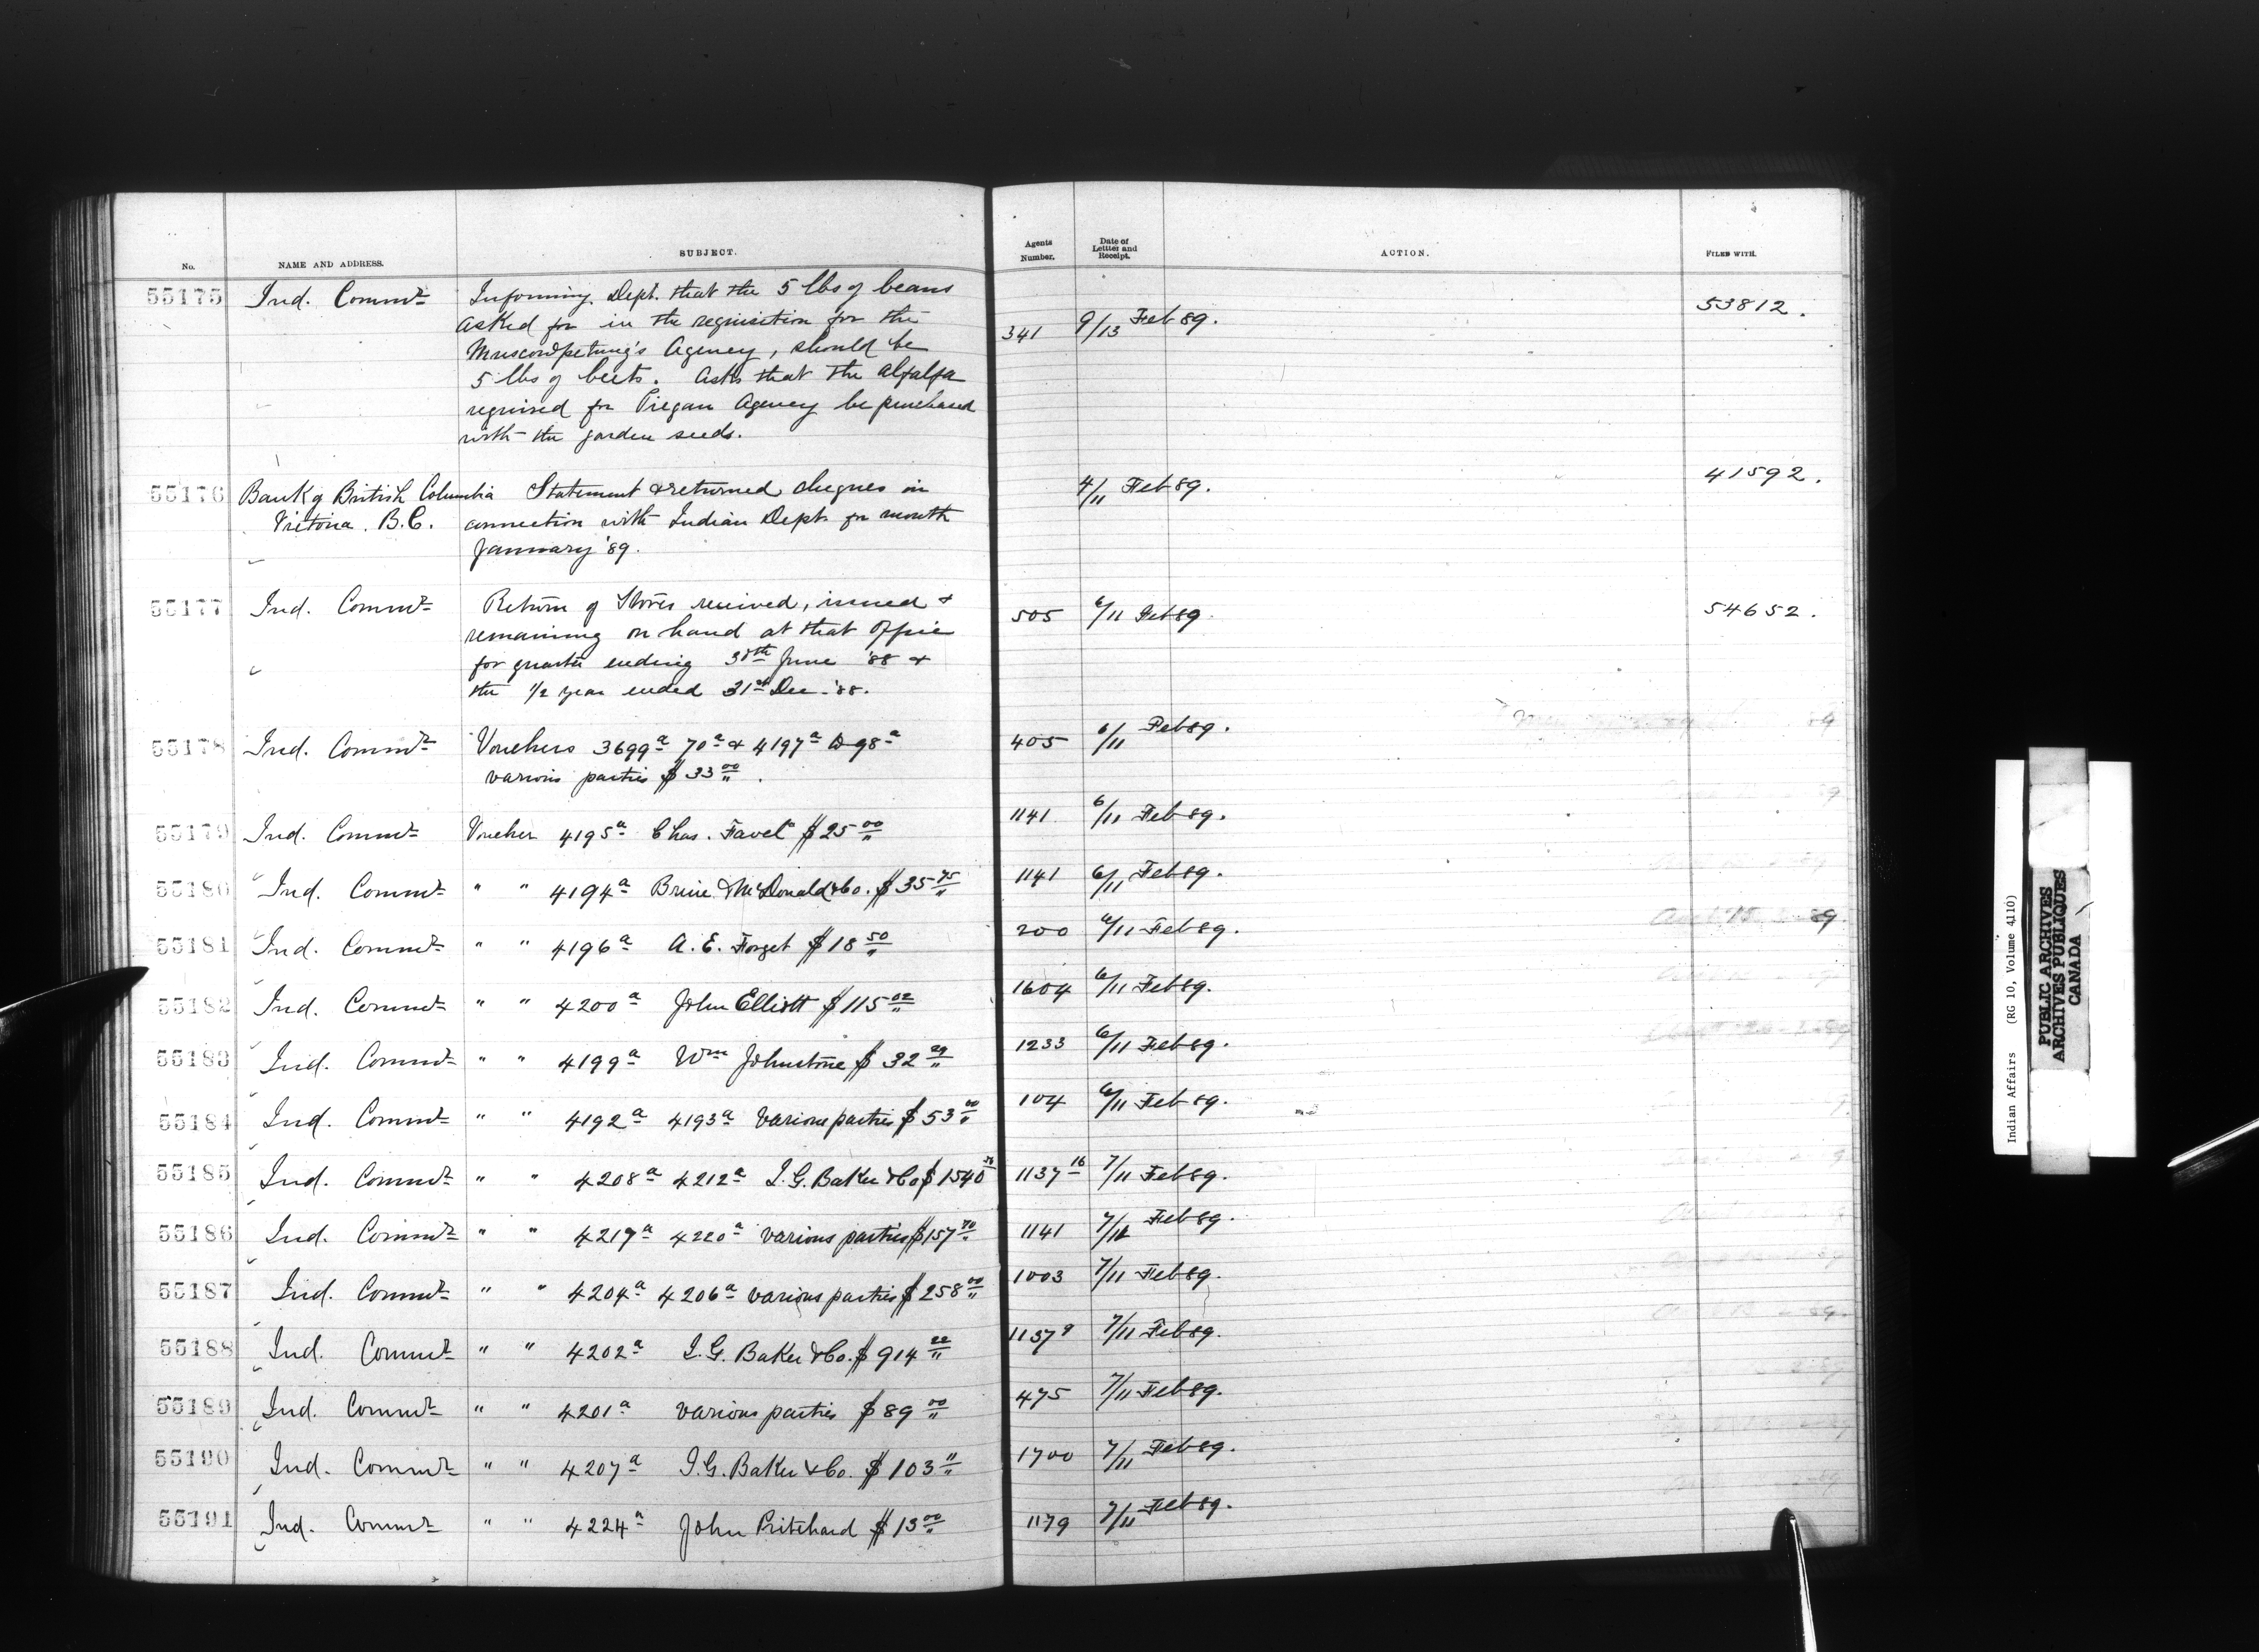 No. NAME AND ADDRESS. SUBJECT. Agents Number. Date of Lettter and Receipt. ACTION. FILED WITH.
55175 Ind. Commr Informing Dept. that the 5 lbs of beans 53812.
asked for in the requisition for the 341 9/13 Feb 89.
Muscowpetung's Agency, should be
5 lbs of beets. Asks that the alfalfa
required for Piegan Agency be purchased
with the garden seeds.
55176 Bank of British Columbia Statement & returned cheques in 4/11 Feb 89. 41592.
Victoria. B.C. connection with Indian Dept. for month
January '89.
55177 Ind. Commr Return of Stores received, issued & 505 6/11 Feb 89. 54652.
remaining on hand at that Office
for quarter ending 30th June '88 &
the 1/2 year ended 31st Dec. '88.
55178 Ind. Commr Vouchers 3699a 70a & 4197a 98a 405 6/11 Feb 89.
various parties $33 00/"
55179 Ind. Commr Voucher 4195a Chas. Favel $25 00/" 1141 6/11 Feb 89.
55180 Ind. Commr " " 4194a McDonald & Co. $35 75/" 1141 6/11 Feb 89.
55181 Ind. Commr " " 4196a A. E. Forget $18 50/" 200 6/11 Feb 89.
55182 Ind. Commr " " 4200a John Elliott $115 02/" 1604 6/11 Feb 89.
55183 Ind. Commr " " 4199a Wm Johnstone $32 29/" 1233 6/11 Feb 89.
55184 Ind. Commr " " 4192a 4193a Various parties $53 00/" 104 6/11 Feb 89.
55185 Ind. Commr " " 4208a 4212a I. G. Baker & Co $1540 1137 16 7/11 Feb 89.
55186 Ind. Commr " " 4219a 4220a various parties $157 70/" 1141 7/12 Feb 89.
55187 Ind. Commr " " 4204a 4206a various parties $258 00/" 1003 7/11 Feb 89.
55188 Ind. Commr " " 4202a I. G. Baker & Co. $914 22/" 1137 9 7/11 Feb 89.
55189 Ind. Commr " " 4201a various parties $89 00/" 475 7/11 Feb 89.
55190 Ind. Commr " " 4207a I. G. Baker & Co. $103 "/" 1700 7/11 Feb 89.
55191 Ind. Commr " " 4224a John Pritchard $13 00/" 1179 7/11 Feb 89.
Indian Affairs (RG 10, Volume 4110)
PUBLIC ARCHIVES
ARCHIVES PUBLIQUES
CANADA